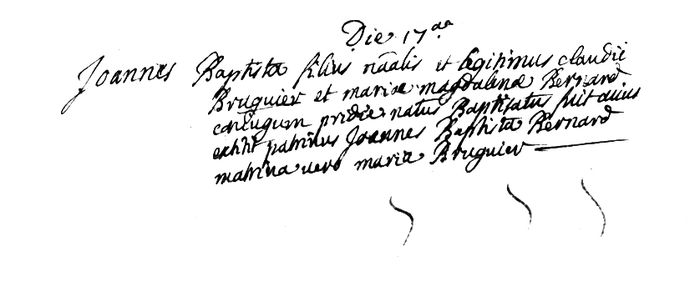 Die 17ae
Joannes Baptista filius nãalis et legitimus claudii
Bruguier et mariæ magdalenæ Bernard
conjugum pridie natus Baptisatus fuit cuius
extitit patrinus Joannes Baptista Bernard
matrina vero maria Bruguier